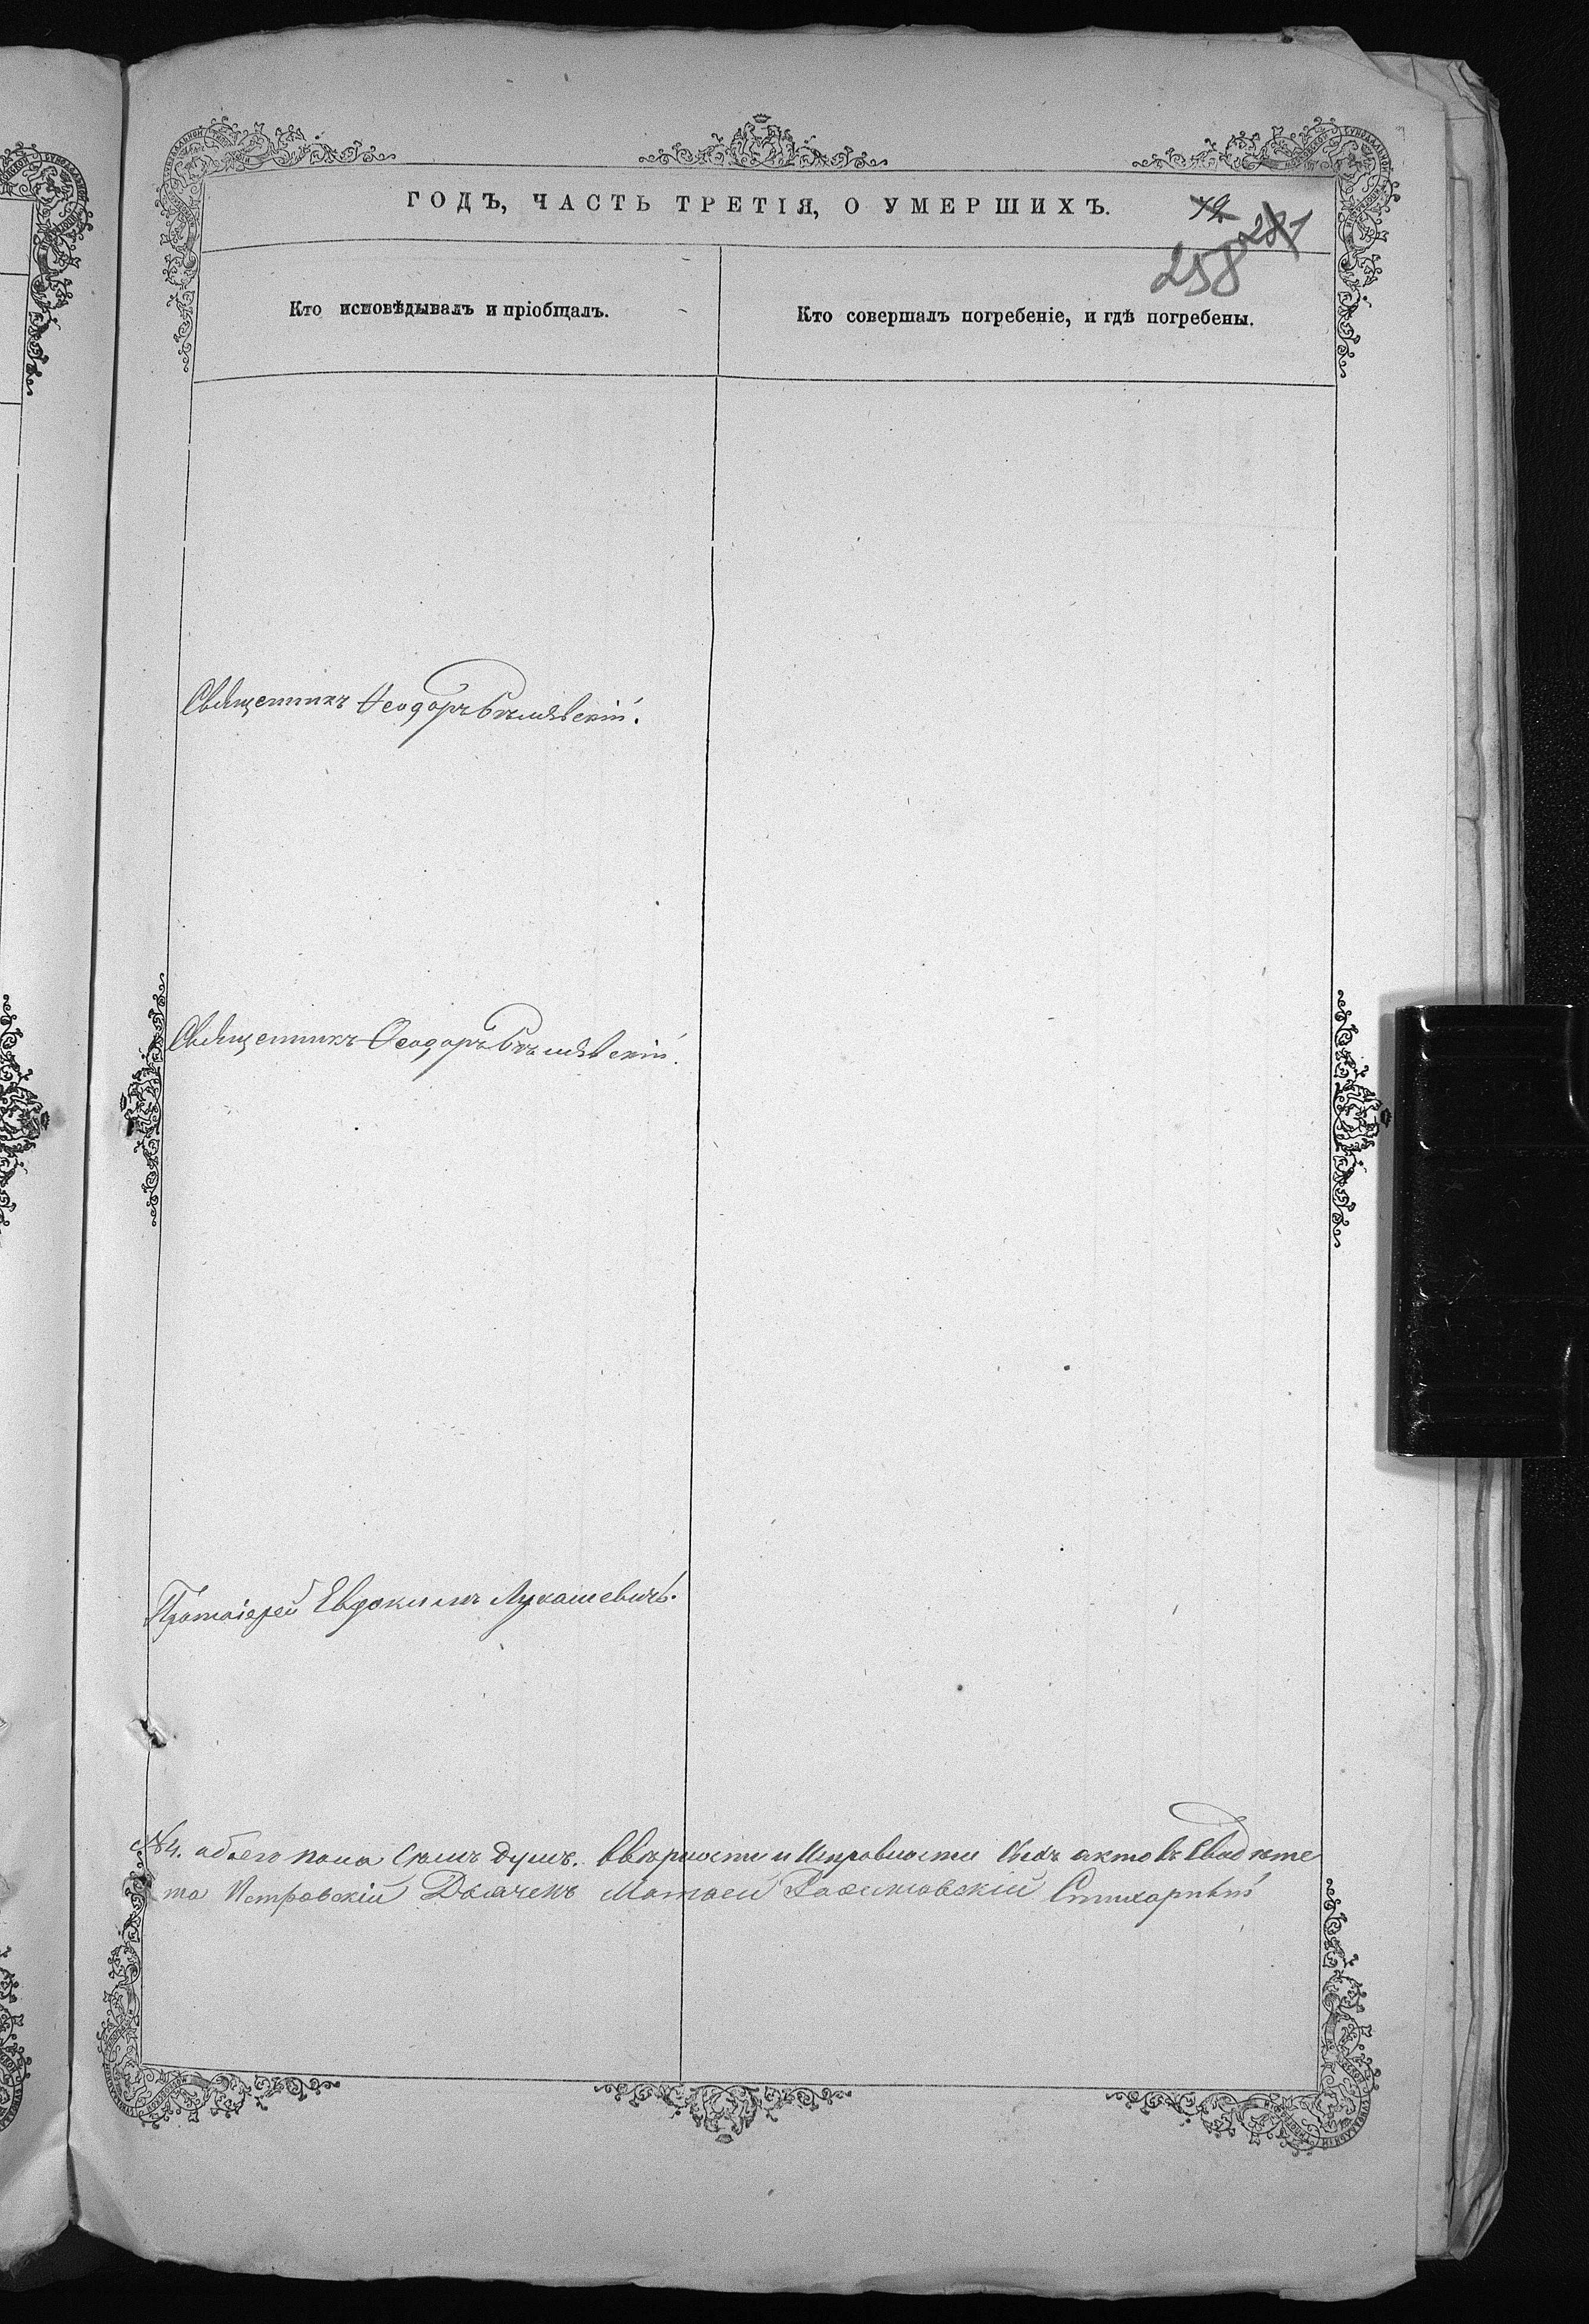 ГОДЪ, ЧАСТЬ ТРЕТІЯ, О УМЕРШИХЪ.
281
258
Кто исповѣдывалъ и пріобщалъ.
Кто совершалъ погребеніе, и гдѣ погребены.
Священникъ Ѳеодоръ Бѣлявскій.
Священникъ Ѳеодоръ Бѣлявскій.
Протоіерей Евдокимъ Лукашевичъ.
№ 4. обоего пола семь душъ. Ввѣрности и Исправности сихъ актовъ Свидѣте
Петровскій Дьячекъ Матѳей Стихарный